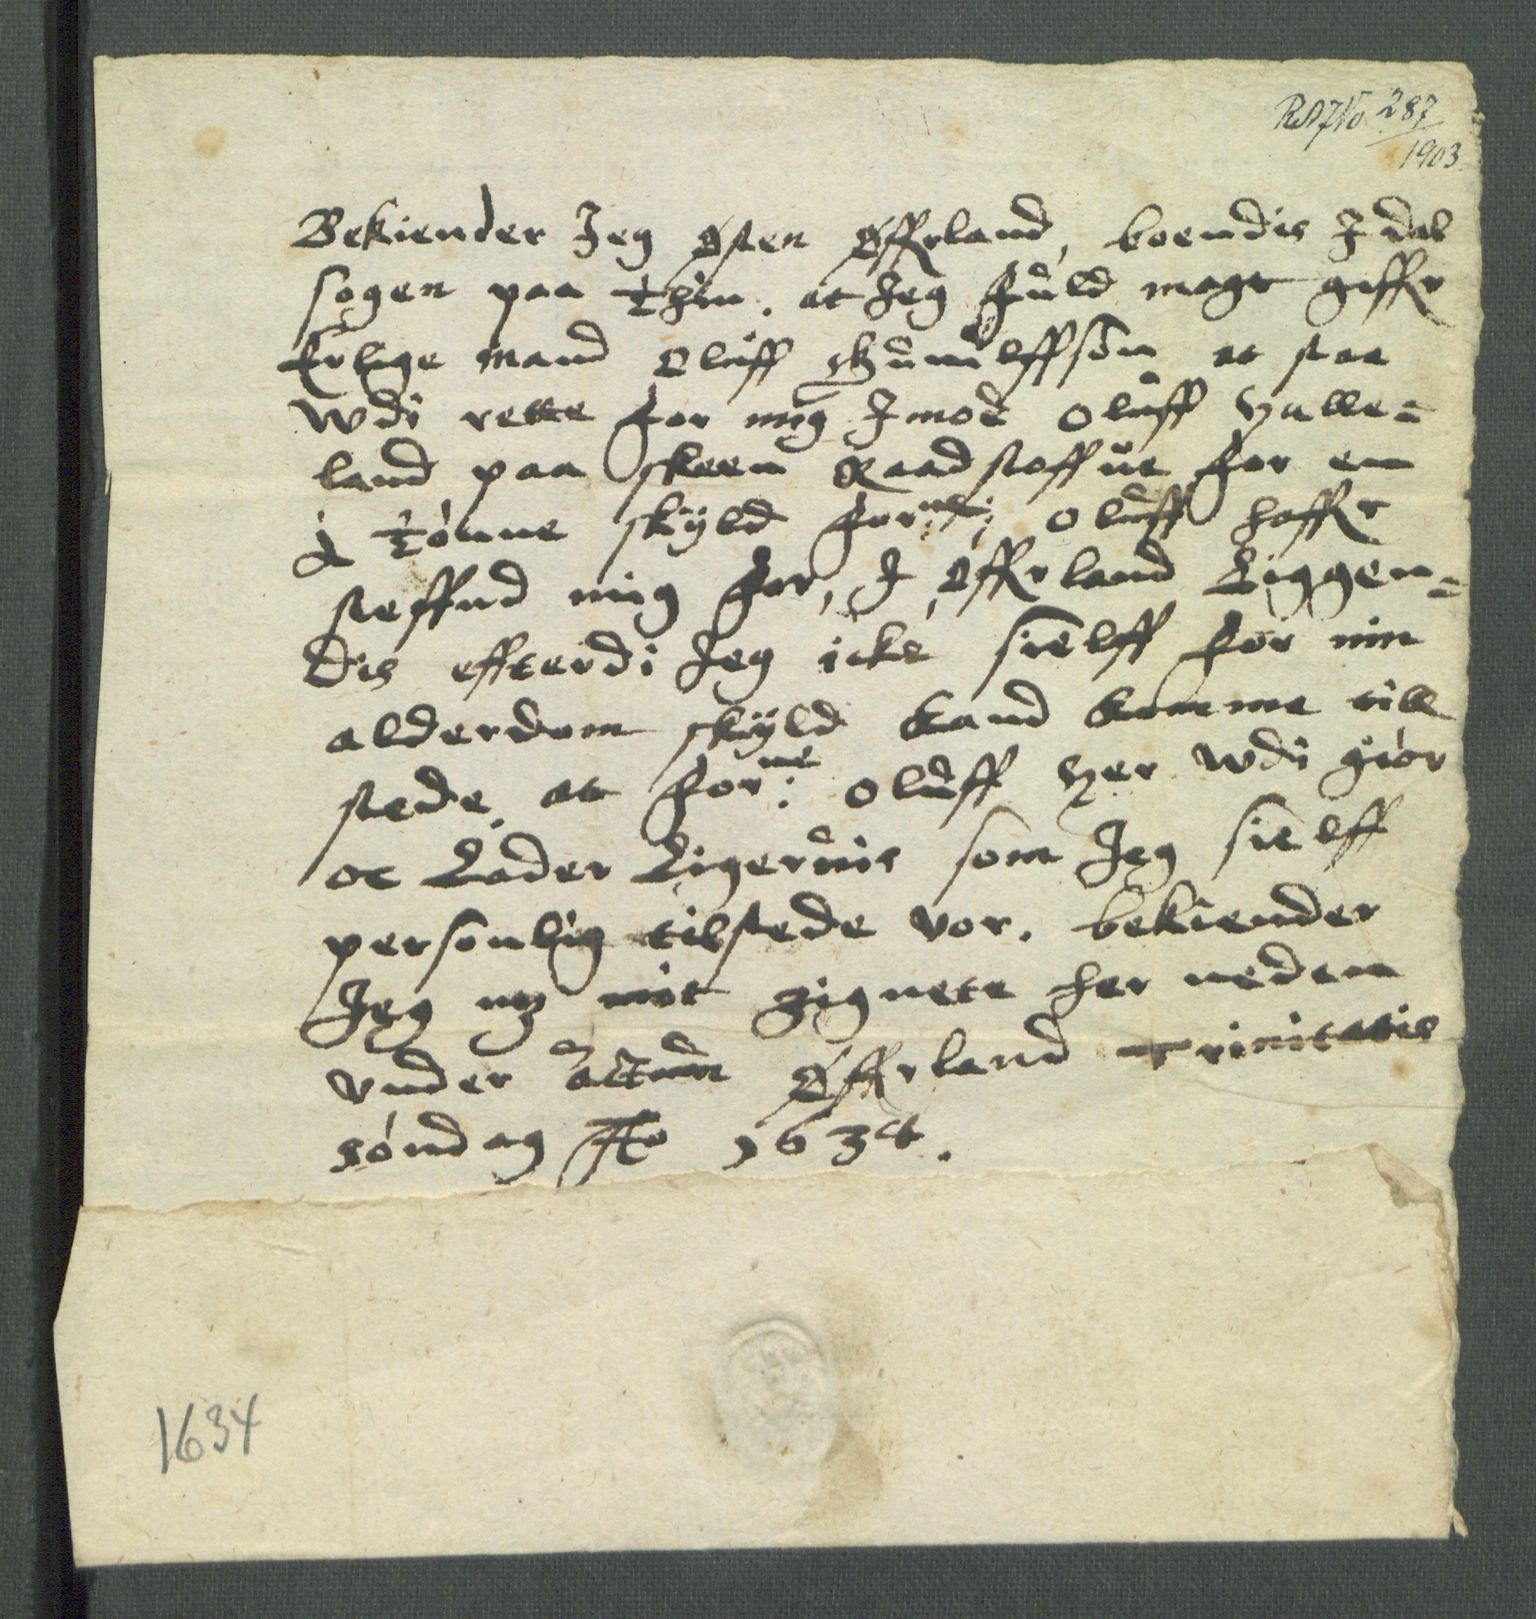 RA JNo 287
1903
Bekiender Jeg Østen Øffrland, boendis J dal
sogen paa thin. at Jeg Fuld magt giffr
Erlige mand Oluff Gunulffsøn at staa
wdi rette for mig Jmod Oluff Halle-
land, paa Skeen Raadstoffue for en
½ tønne skyld forne: Oluff haffr
steffnd mig for, J Øffrland Liggen-
dis effterdi Jeg icke sielff for min
alderdom skyld kand komme till
stede, at forne: Oluff her wdi giør
oc Lader Ligeruis som Jeg sielff
personlig tilstede vor. bekiender
Jeg mz mit zignete her neden
vnder actum Øffrland Trinitatis
søndag Ao 1634.
1634